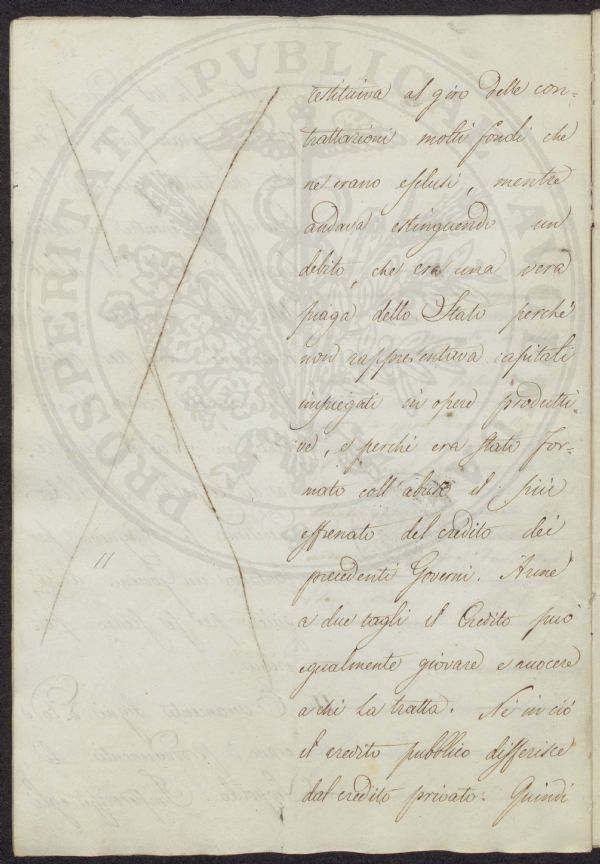 restituiva al giro delle con-
trattazioni molti fondi che
ne erano esclusi, mentre
andava estinguendo un
debito, che era una vera
piaga dello Stato perchè
non rappresentava capitali
impiegati in opere produtti
ve, e perchè era stato for-
mato coll'abuso il più
effrenato del credito dei
precedenti Governi. Arme
a due tagli il Credito può
egualmente giovare e nuocere
a chi la tratta. Nè in ciò
il credito pubblico differisce
dal credito privato. Quindi
11
PROSPERITATI PUBLICAE